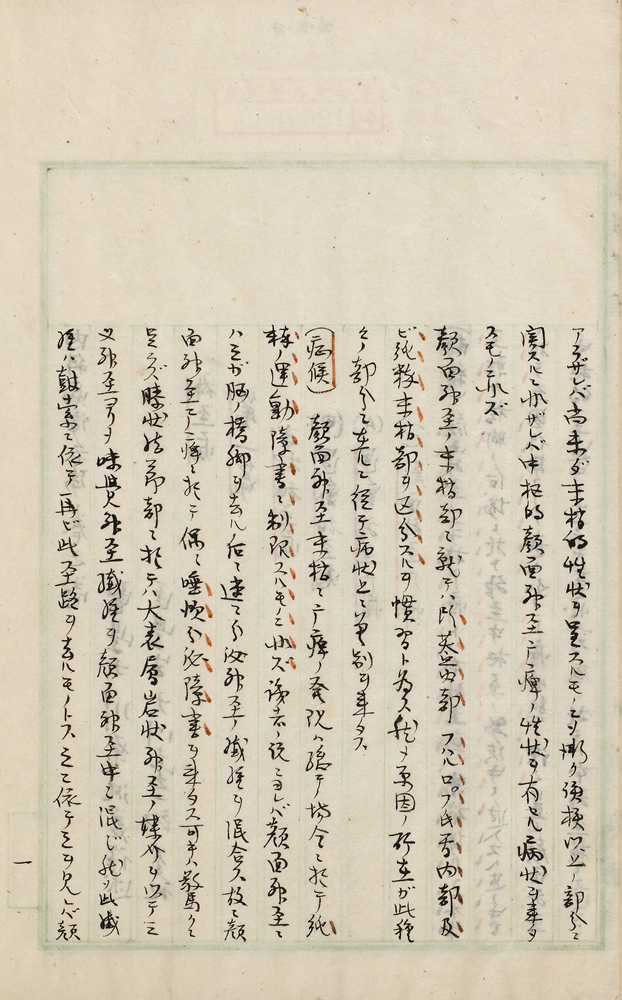 アラザレバ尚未ダ末梢的性状ヲ呈スルモノニシテ漸ク須検以上ノ部分ニ
関スルニ非ザレバ中枢的顔面神経麻痺ノ性状ヲ有セル病状ヲ来タ
スモノニ非ズ
顔面神経ノ末梢部ニ就テハ所基底部 フハルロプ氏管内部及
ビ純粋末梢部ヲ区分スルヲ慣習ト為ス然ヲ原因ノ所在ガ此種
々ノ部分ニ在ルニ従テ病状上ニ差別ヲ来タス
(症候) 顔面神経末梢麻痺ノ発現ハ総テノ場合ニ於テ純
粋ノ運動障害ニ制限スルモノニ非ズ 諸者ノ説ニヨレバ顔面神経ニ
ハ之ガ脳ノ橋脚ヲ去ル后ニ達テ分泌神経ノ繊維ヲ混合ス故ニ顔
面神経麻痺ニ於テ偶々唾液分泌障害ヲ来タス可キハ驚クニ
足ラズ膝状結節部ニ於テハ大表層岩状神経ノ媒介ヲ以テ三
叉神経ヨリ味覚神経繊維ヲ顔面神経中ニ混ジ然ヲ此繊
維ハ鼓索ニ依テ再ビ此経路ヲ去ルモノトス之ニ依テ之ヲ見レバ顔
一